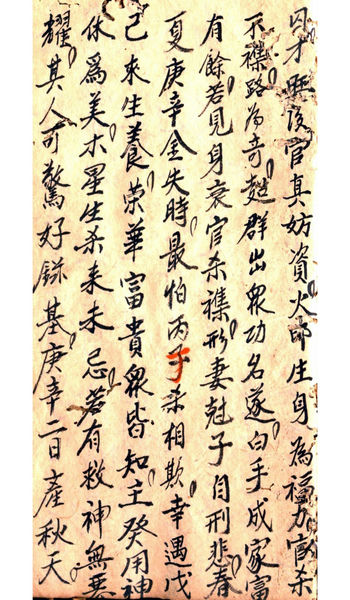 才旺後官真妨資火印生身為福力官杀
不襍路為奇群出眾功名遂白手成家富
有餘若見身衰官杀襍刑妻尅子自刑悲春
夏庚辛金失時最怕丙子杀相欺幸遇戊
己來生養榮華富貴眾皆知主癸用神
休爲美木星生杀来未忌若有救神無
耀其人可驚好基庚辛二日產秋天